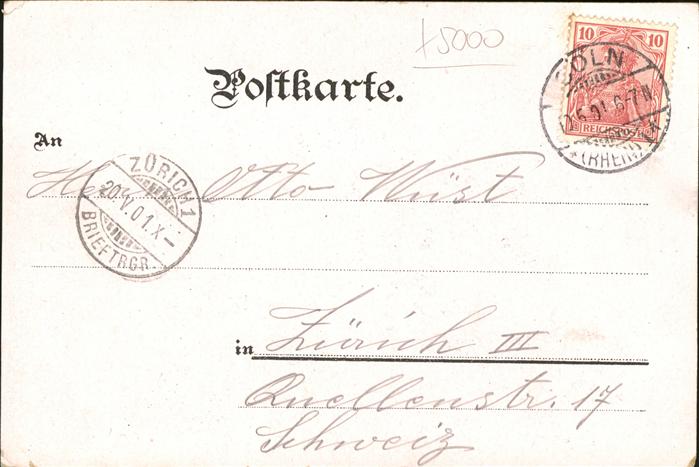 +5000
10 10
REICHSPOST
CÖLN
6-7N
* (RHEIN)
Postkarte.
An
Herrn Otto Wüst
ZÜRICH 1
20.V.01.X-
BRIEFTRGR.
in Zürich III
Quellenstr. 17
Schweiz